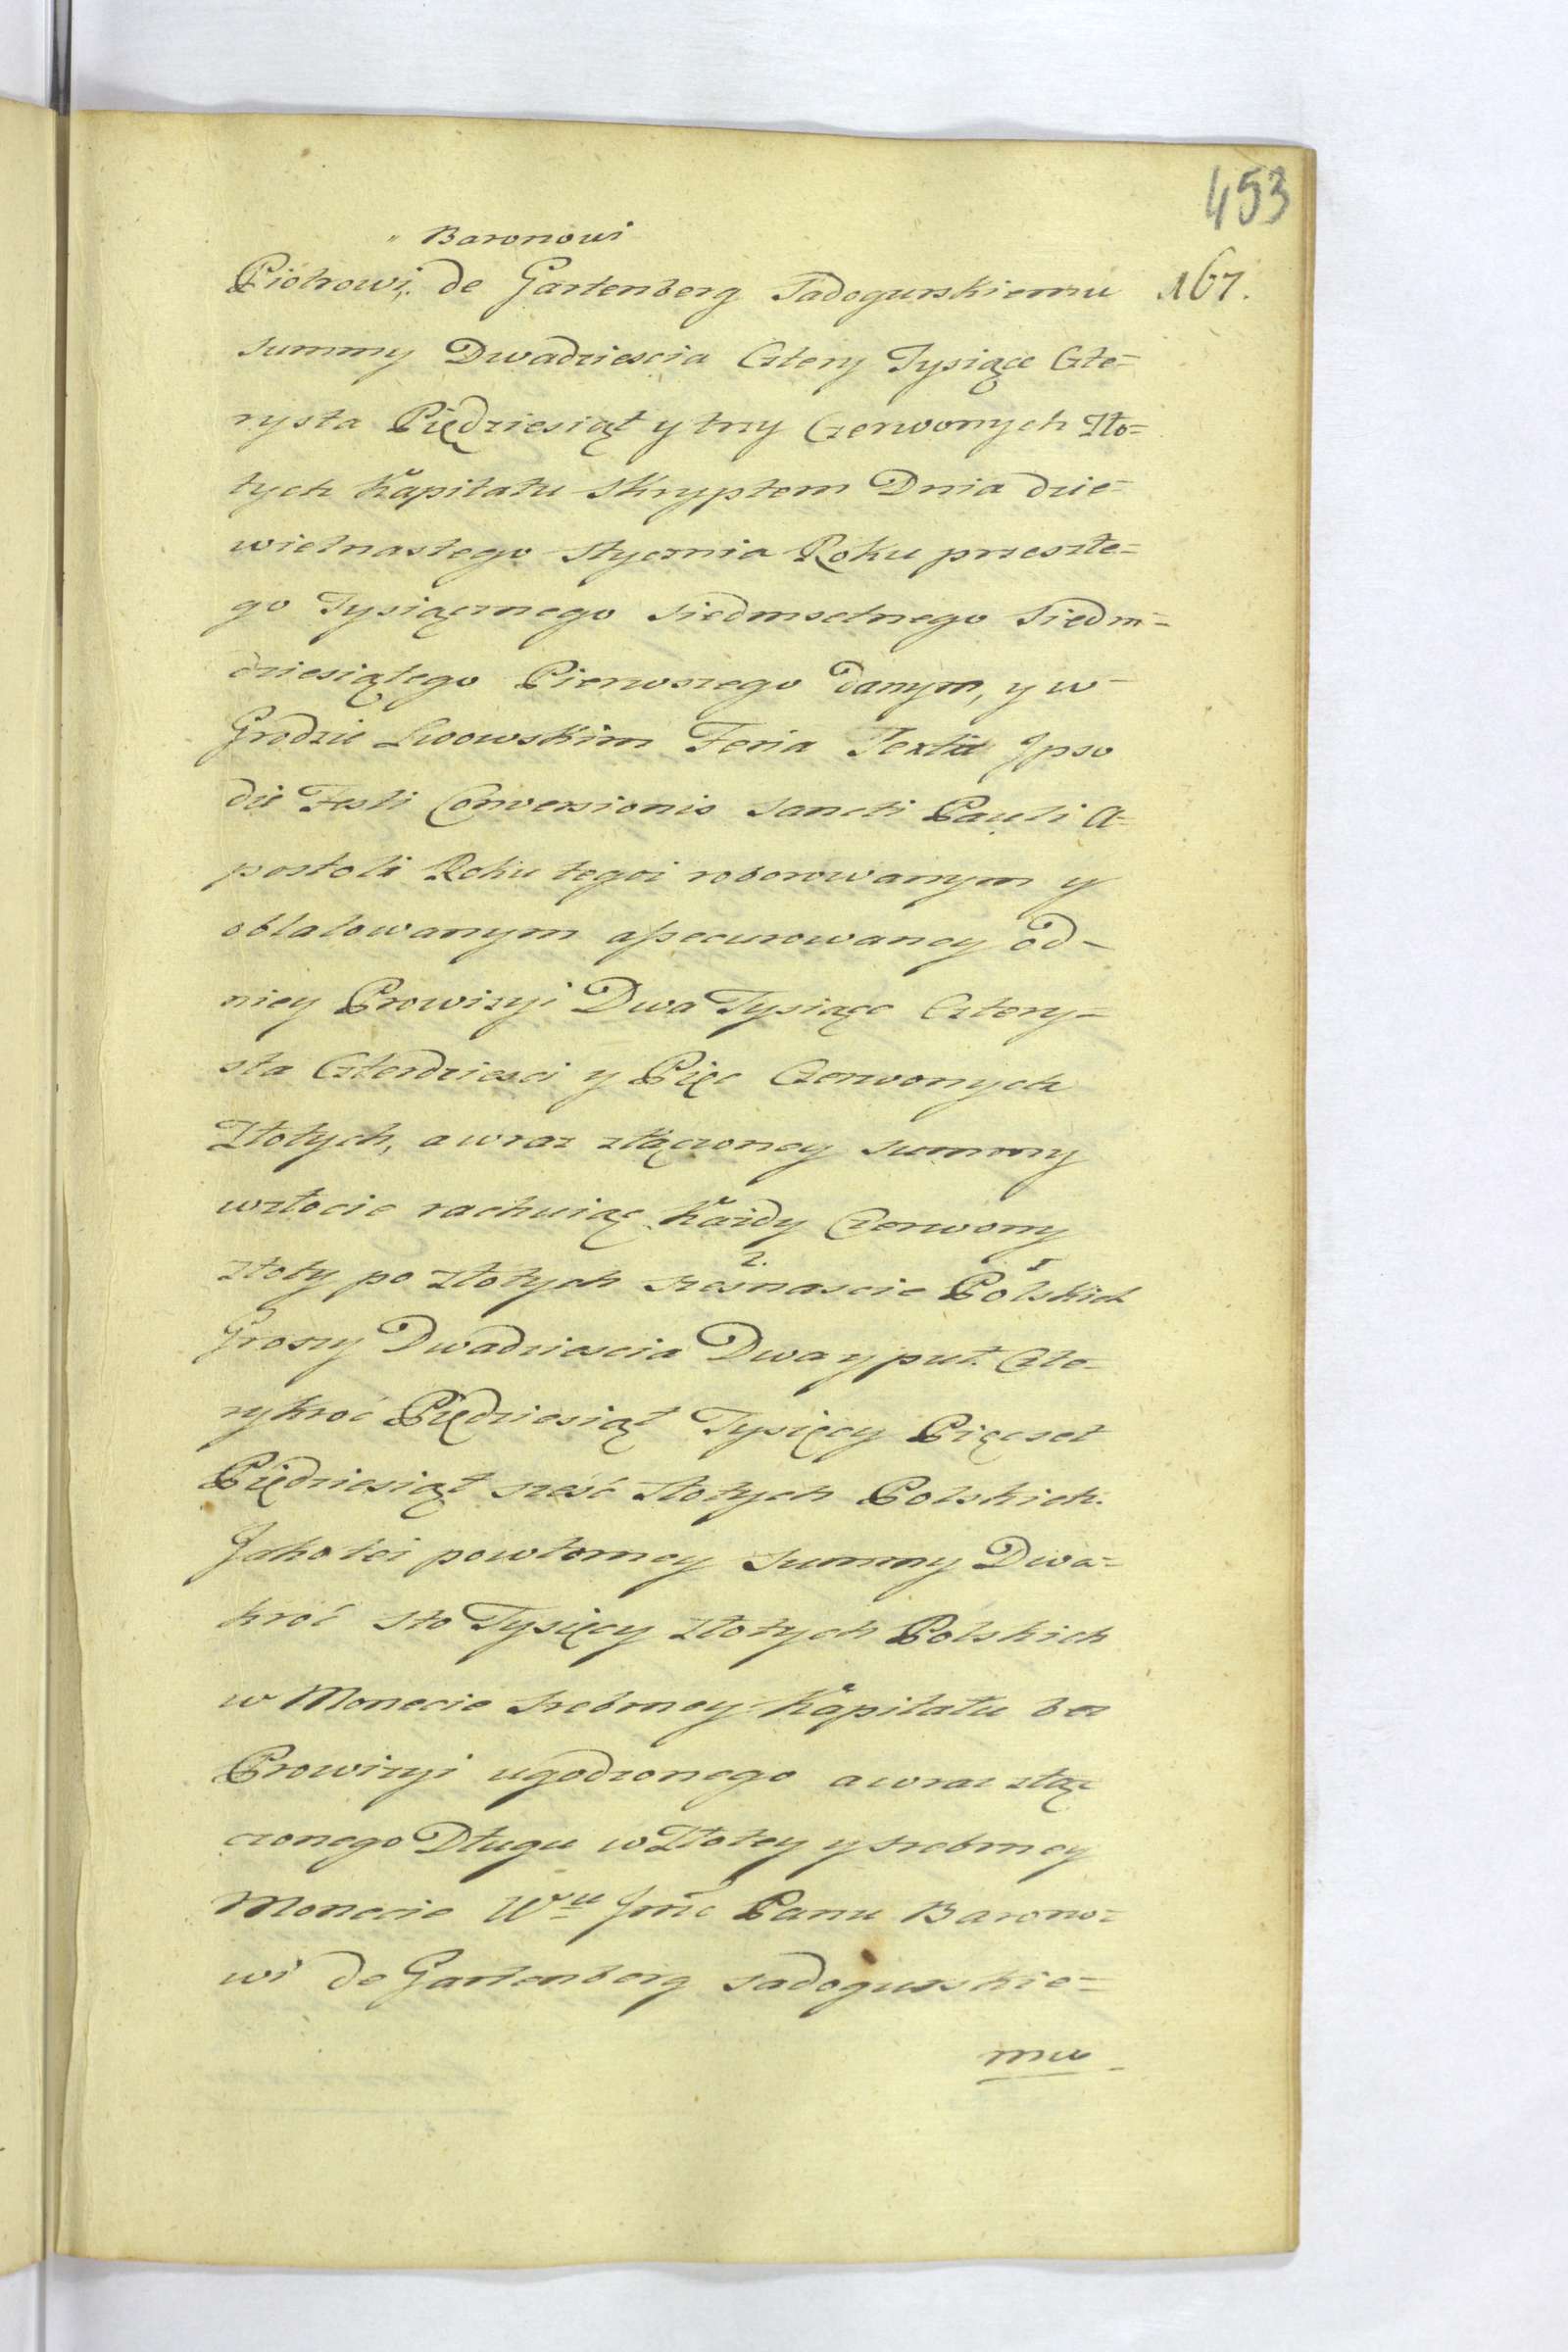 453
" Baronowi
Piotrowi. de Gartenberg Sadogurskiemu 167.
summy Dwadziescia Cztery Tysiące Czte=
rysta Piędziesiąt y trzy Czerwonych Zło=
tych Kapitału Skryptem Dnia dzie=
wietnastego Stycznia Roku przeszłe=
go Tysiącznego Siedmsetnego Siedm=
dziesiątego Pierwszego danym, y w
Grodzie Lwowskim Feria Sexta Ipso
die Festi Conversionis Sancti Pauli A=
postoli Roku tegoż roborowanym y
oblatowanym assecurowaney od=
niey Prowizyi Dwa Tysiące Cztery=
sta Czterdziesci y Pięc Czerwonych
Złotych, a wraz złączoney summy
wzłocie rachuiąc Każdy Czerwony
złoty po złotych szesnascie 2. Polskich 1
Groszy Dwadziescia Dwa y puł. Czte=
rykroć Piędziesiąt Tysięcy Pięcset
Piędziesiąt szesć złotych Polskich.
Jako też powtorney Summy Dwa=
kroć sto Tysięcy złotych Polskich
w Monecie Srebrney Kapitału bez
Prowizyi ugodzonego a wraz złą=
czonego Długu w Złotey y srebrney
Monecie Wu Jmc Panu Barono=
wi de Gartenberg Sadogurskie=
mu